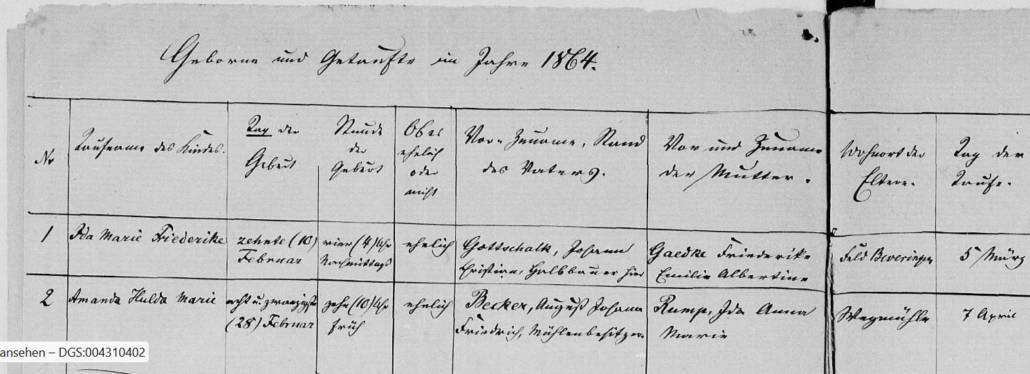 Geborne und Getaufte im Jahre 1864.
No
Taufname des Kindes.
Tag der
Geburt
Stunde
der
Geburt
Ob es
ehelich
oder
nicht
Vor- Zuname, Stand
des Vaters.
Vor und Zuname
der Mutter.
Wohnort der
Eltern.
Tag der
Taufe.
1
Ida Marie Friederike
zehnte (10)
Februar
vier (4) Uhr
Nachmittags
ehelich
Gottschalk, Johann
Christian, Halbbauer hier
Gaedke Friederike
Emilie Albertine
Feld Beveringen
5 März
2
Amanda Hulda Marie
acht u. zwanzigste
(28) Februar
zehn (10) Uhr
früh
ehelich
Becker, August Johann
Friedrich, Mühlenbesitzer
Rump, Ida Anna
Marie
Wegmühle
7 April
ansehen – DGS:004310402